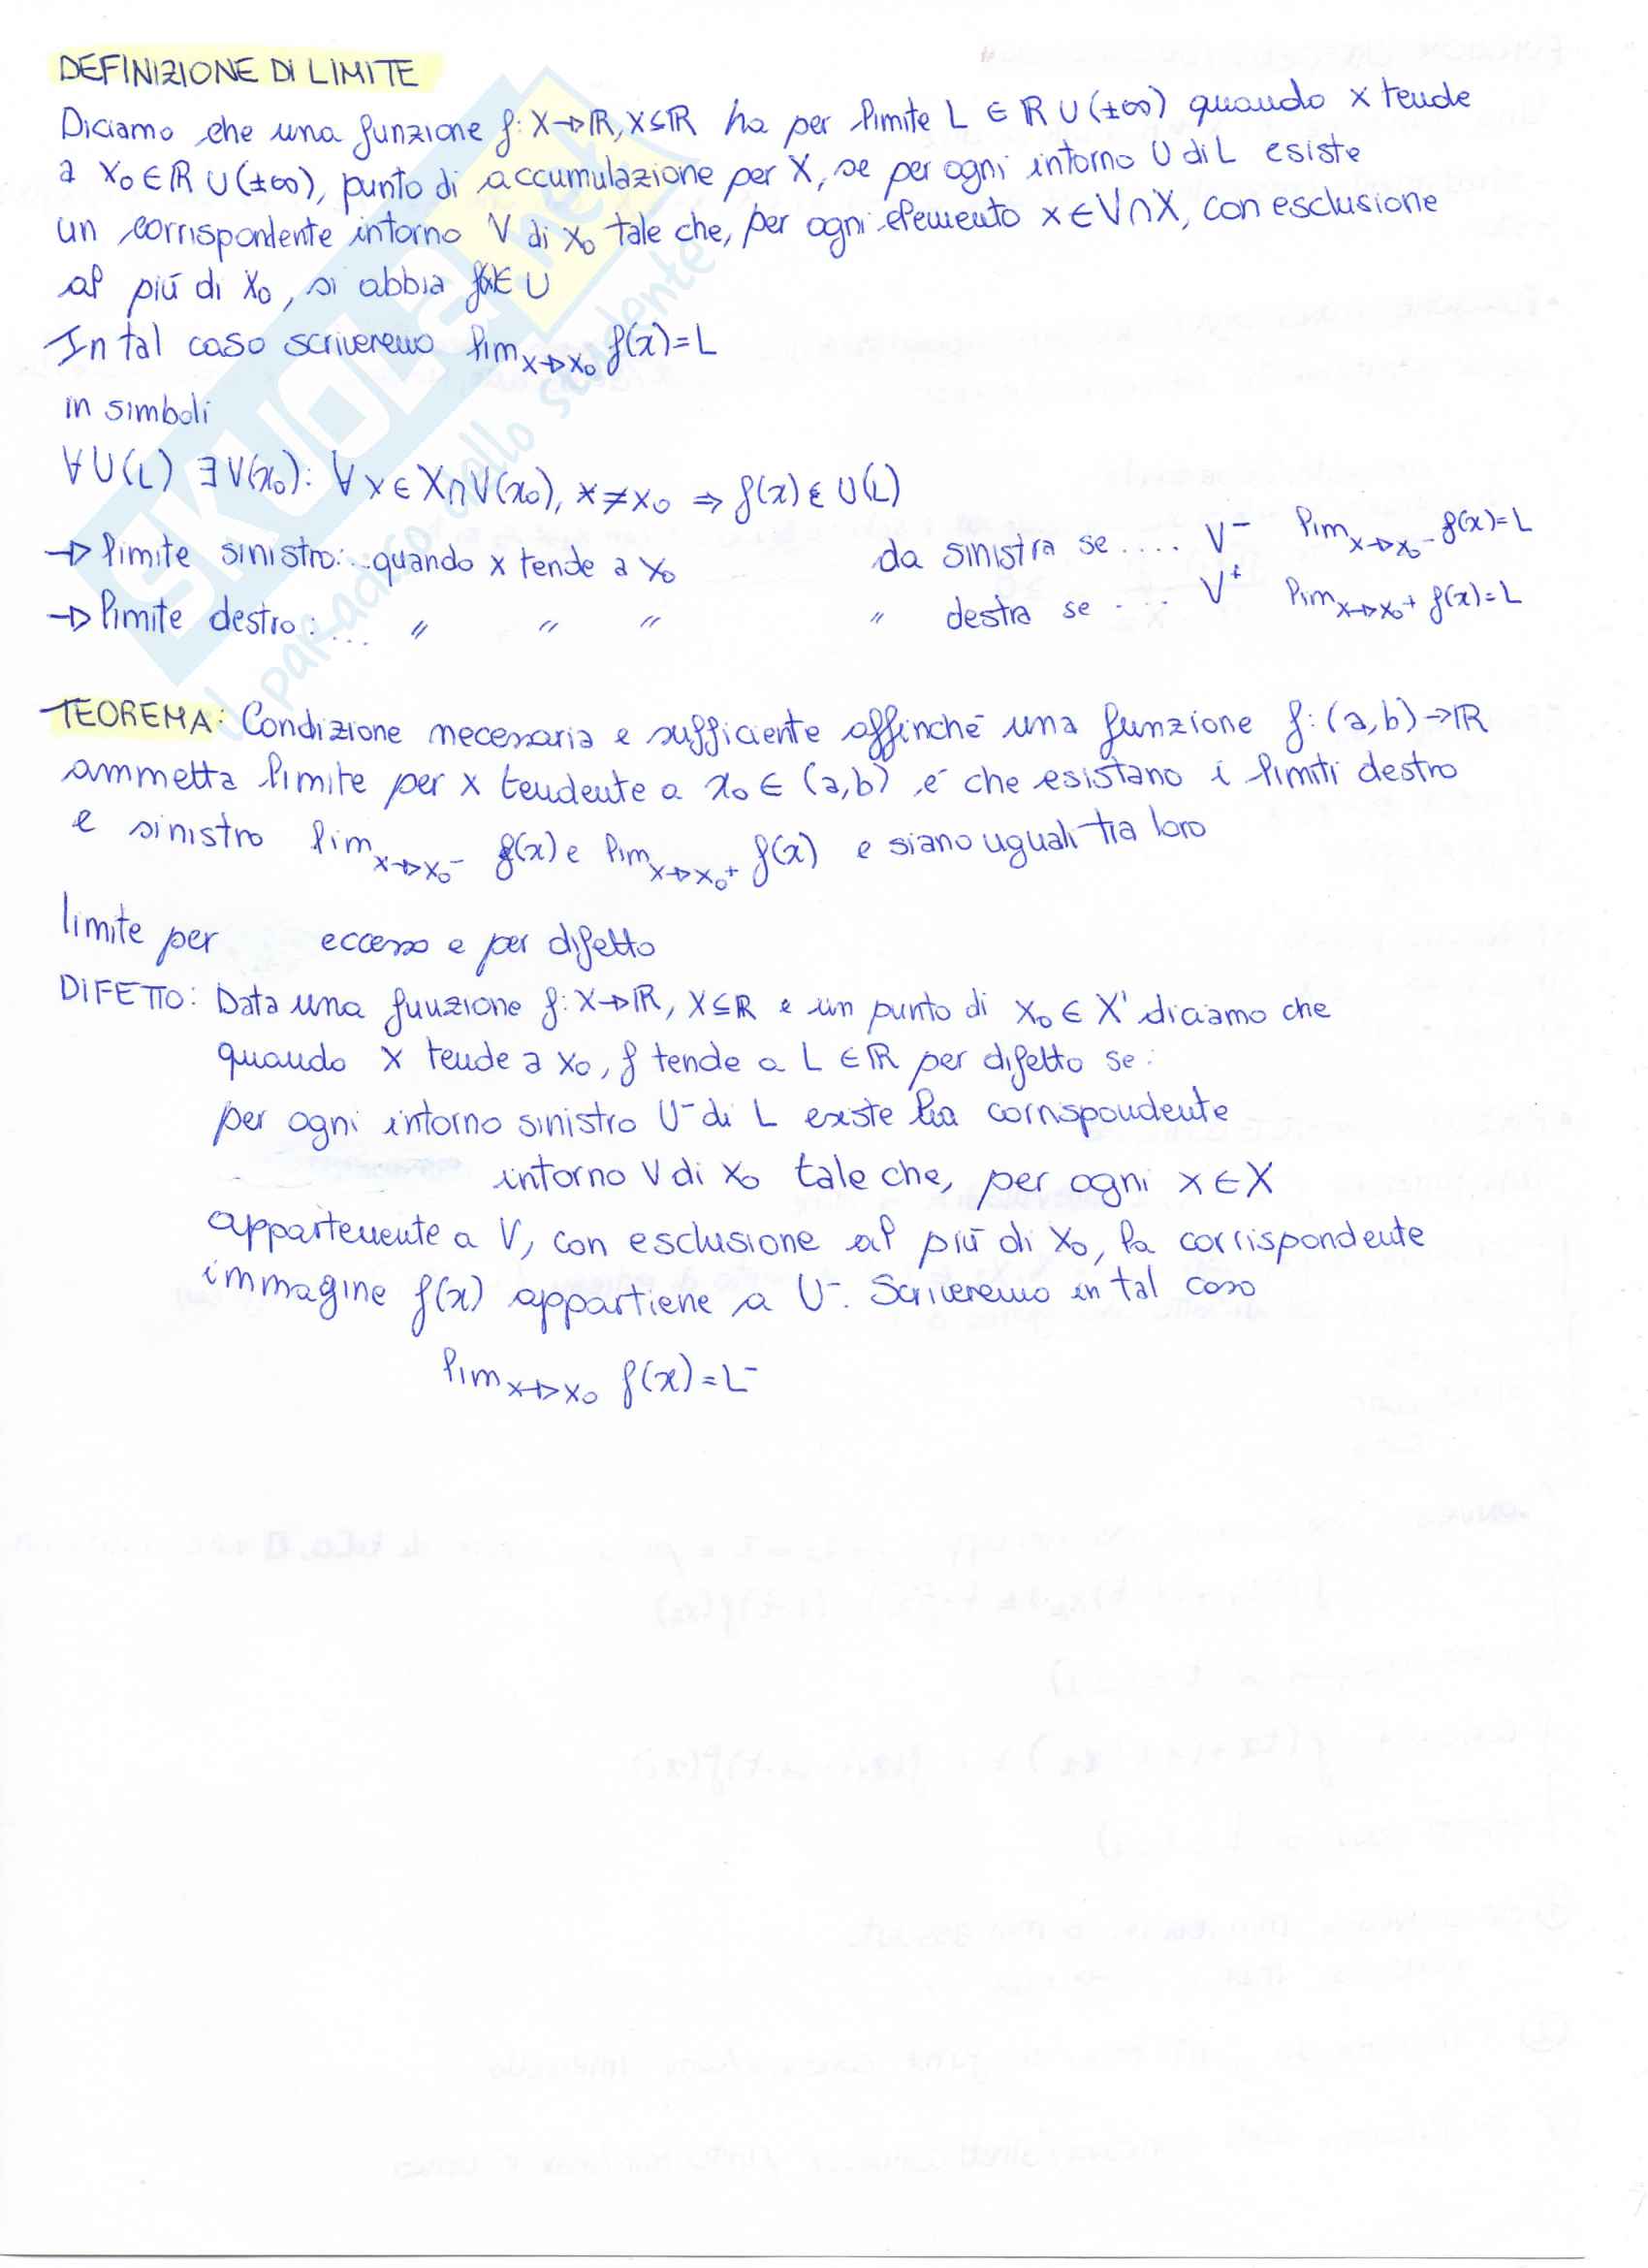 DEFINIZIONE DI LIMITE
Diciamo che una funzione f: X→ℝ, X⊆ℝ ha per limite L ∈ ℝ ∪ (±∞) quando x tende
a x₀ ∈ ℝ ∪ (±∞), punto di accumulazione per X, se per ogni intorno U di L esiste
un corrispondente intorno V di x₀ tale che, per ogni elemento x ∈ V∩X, con esclusione
al più di x₀, si abbia f(x)∈ U
In tal caso scriveremo lim x→x₀ f(x)=L
in simboli
∀ U(L) ∃ V(x₀): ∀ x ∈ X∩V(x₀), x ≠ x₀ ⇒ f(x) ∈ U(L)
→ limite sinistro:... quando x tende a x₀ da sinistra se .... V⁻ lim x→x₀⁻ f(x)=L
→ limite destro: ... " " " " destra se .... V⁺ lim x→x₀⁺ f(x)=L
TEOREMA: Condizione necessaria e sufficiente affinché una funzione f: (a,b)→ℝ
ammetta limite per x tendente a x₀ ∈ (a,b) é che esistano i limiti destro
e sinistro lim x→x₀⁻ f(x) e lim x→x₀⁺ f(x) e siano uguali tra loro
limite per eccesso e per difetto
DIFETTO: Data una funzione f: X→ℝ, X⊆ℝ e un punto di x₀ ∈ X' diciamo che
quando x tende a x₀, f tende a L ∈ ℝ per difetto se:
per ogni intorno sinistro U⁻ di L esiste corrispondente
intorno V di x₀ tale che, per ogni x ∈ X
appartenente a V, con esclusione al più di x₀, la corrispondente
immagine f(x) appartiene a U⁻. Scriveremo in tal caso
lim x→x₀ f(x)=L⁻
SKUOLA.net
il paradiso dello studente